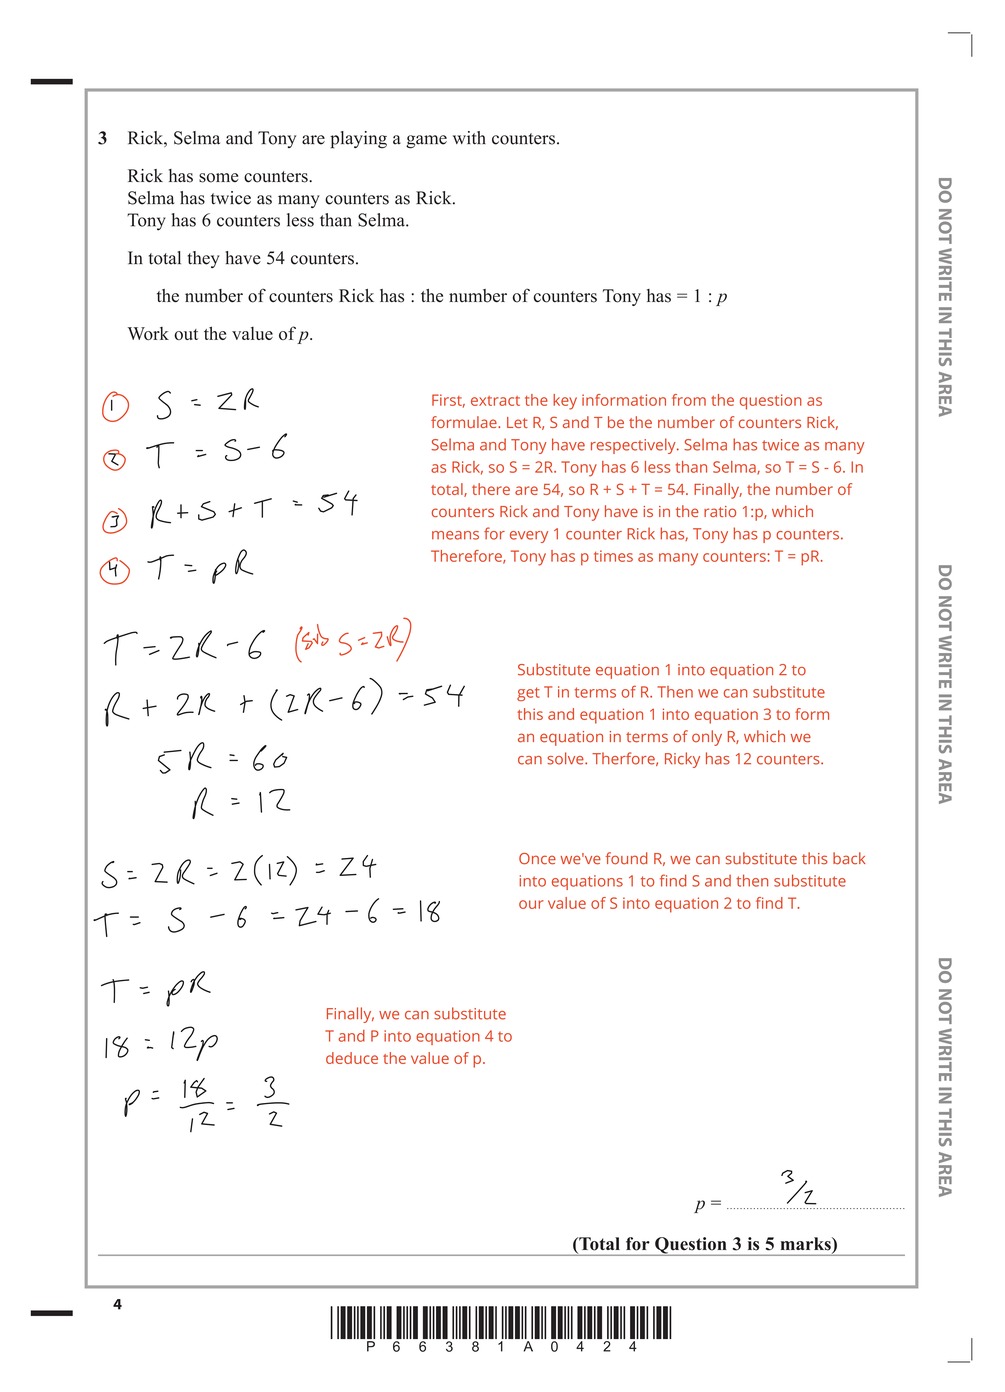 3 Rick, Selma and Tony are playing a game with counters.
Rick has some counters.
Selma has twice as many counters as Rick.
Tony has 6 counters less than Selma.
In total they have 54 counters.
the number of counters Rick has : the number of counters Tony has = 1 : p
Work out the value of p.
① S = 2R
② T = S - 6
③ R + S + T = 54
④ T = pR
First, extract the key information from the question as
formulae. Let R, S and T be the number of counters Rick,
Selma and Tony have respectively. Selma has twice as many
as Rick, so S = 2R. Tony has 6 less than Selma, so T = S - 6. In
total, there are 54, so R + S + T = 54. Finally, the number of
counters Rick and Tony have is in the ratio 1:p, which
means for every 1 counter Rick has, Tony has p counters.
Therefore, Tony has p times as many counters: T = pR.
T = 2R - 6 (sub S = 2R)
R + 2R + (2R - 6) = 54
5R = 60
R = 12
Substitute equation 1 into equation 2 to
get T in terms of R. Then we can substitute
this and equation 1 into equation 3 to form
an equation in terms of only R, which we
can solve. Therfore, Ricky has 12 counters.
S = 2R = 2(12) = 24
T = S - 6 = 24 - 6 = 18
Once we've found R, we can substitute this back
into equations 1 to find S and then substitute
our value of S into equation 2 to find T.
T = pR
18 = 12p
p = 18/12 = 3/2
Finally, we can substitute
T and P into equation 4 to
deduce the value of p.
p = 3/2
(Total for Question 3 is 5 marks)
4
P66381A0424
DO NOT WRITE IN THIS AREA
DO NOT WRITE IN THIS AREA
DO NOT WRITE IN THIS AREA